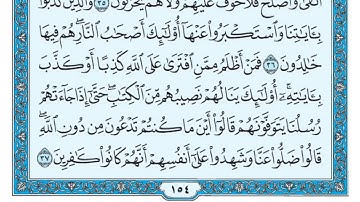 ٱتَّقَىٰ وَأَصْلَحَ فَلَا خَوْفٌ عَلَيْهِمْ وَلَا هُمْ يَحْزَنُونَ ٣٥ وَٱلَّذِينَ كَذَّبُوا۟
بِـَٔايَٰتِنَا وَٱسْتَكْبَرُوا۟ عَنْهَآ أُو۟لَٰٓئِكَ أَصْحَٰبُ ٱلنَّارِ ۖ هُمْ فِيهَا
خَٰلِدُونَ ٣٦ فَمَنْ أَظْلَمُ مِمَّنِ ٱفْتَرَىٰ عَلَى ٱللَّهِ كَذِبًا أَوْ كَذَّبَ
بِـَٔايَٰتِهِۦٓ ۚ أُو۟لَٰٓئِكَ يَنَالُهُمْ نَصِيبُهُم مِّنَ ٱلْكِتَٰبِ ۖ حَتَّىٰٓ إِذَا جَآءَتْهُمْ
رُسُلُنَا يَتَوَفَّوْنَهُمْ قَالُوٓا۟ أَيْنَ مَا كُنتُمْ تَدْعُونَ مِن دُونِ ٱللَّهِ ۖ
قَالُوا۟ ضَلُّوا۟ عَنَّا وَشَهِدُوا۟ عَلَىٰٓ أَنفُسِهِمْ أَنَّهُمْ كَانُوا۟ كَٰفِرِينَ ٣٧
١٥٤